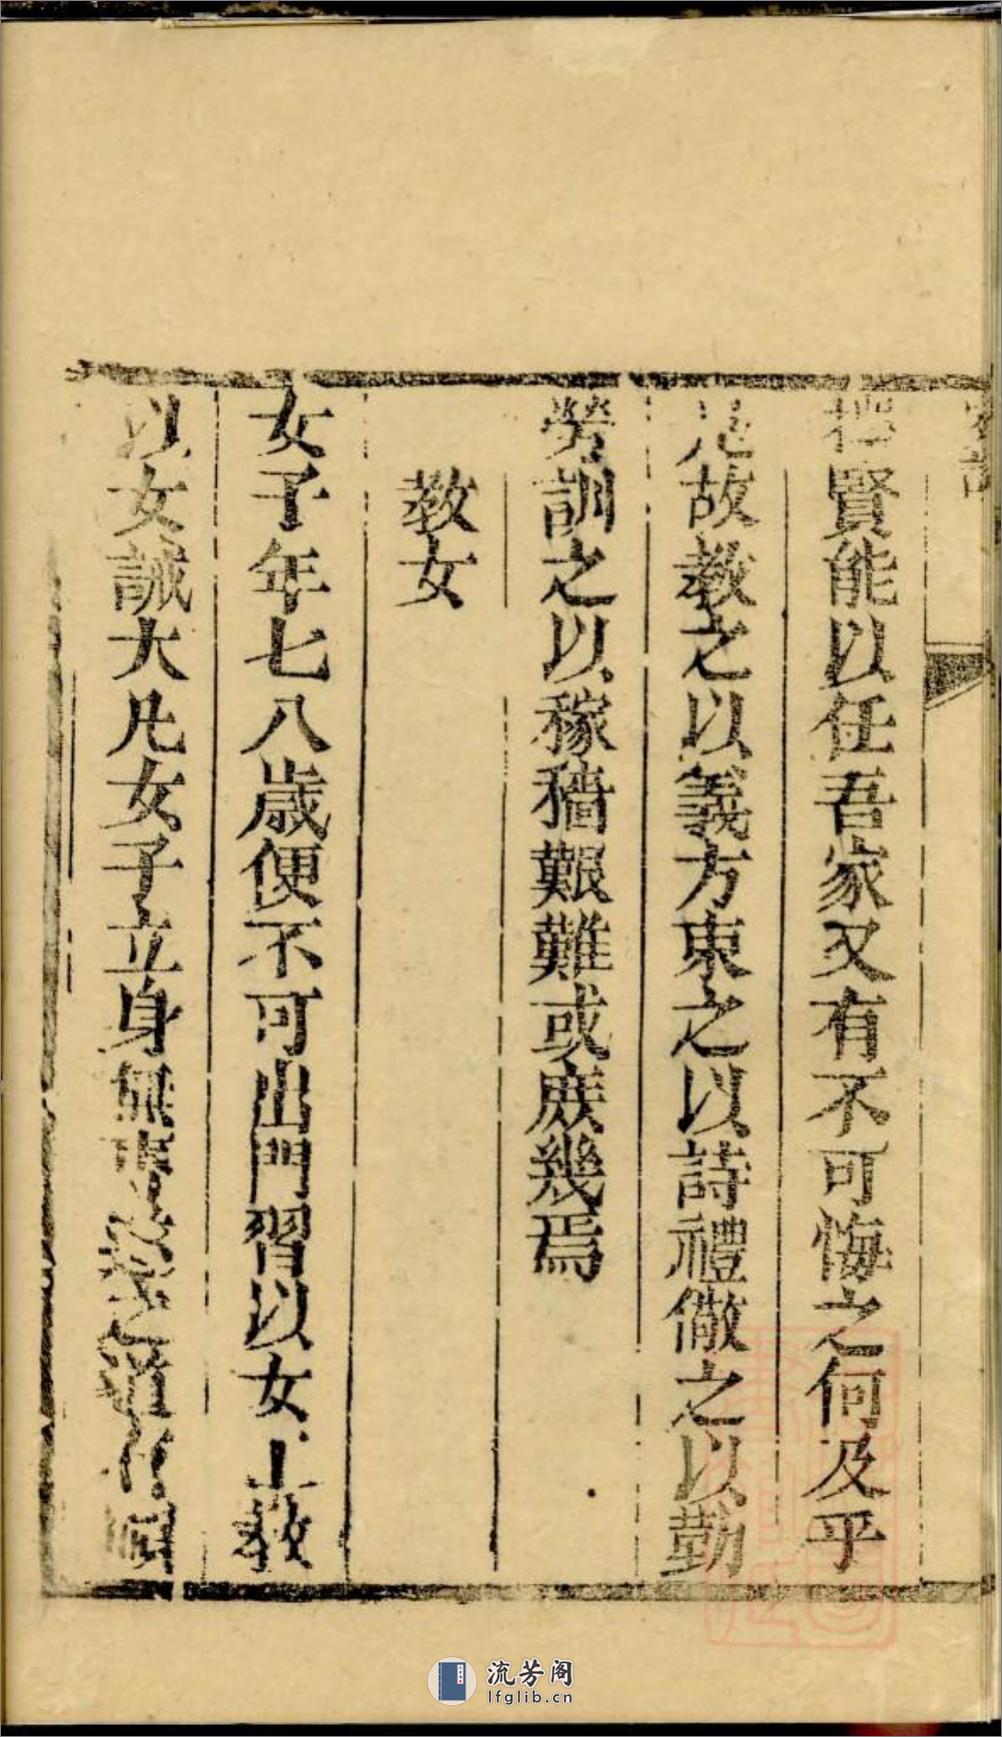 擇賢能以任吾家又有不可悔之何及乎
是故教之以義方束之以詩禮儆之以勤
勞訓之以稼穡艱難或庶幾焉
教女
女子年七八歲便不可出門習以女工教
以女誡大凡女子立身無專遂之道有
流芳阁
lfglib.cn